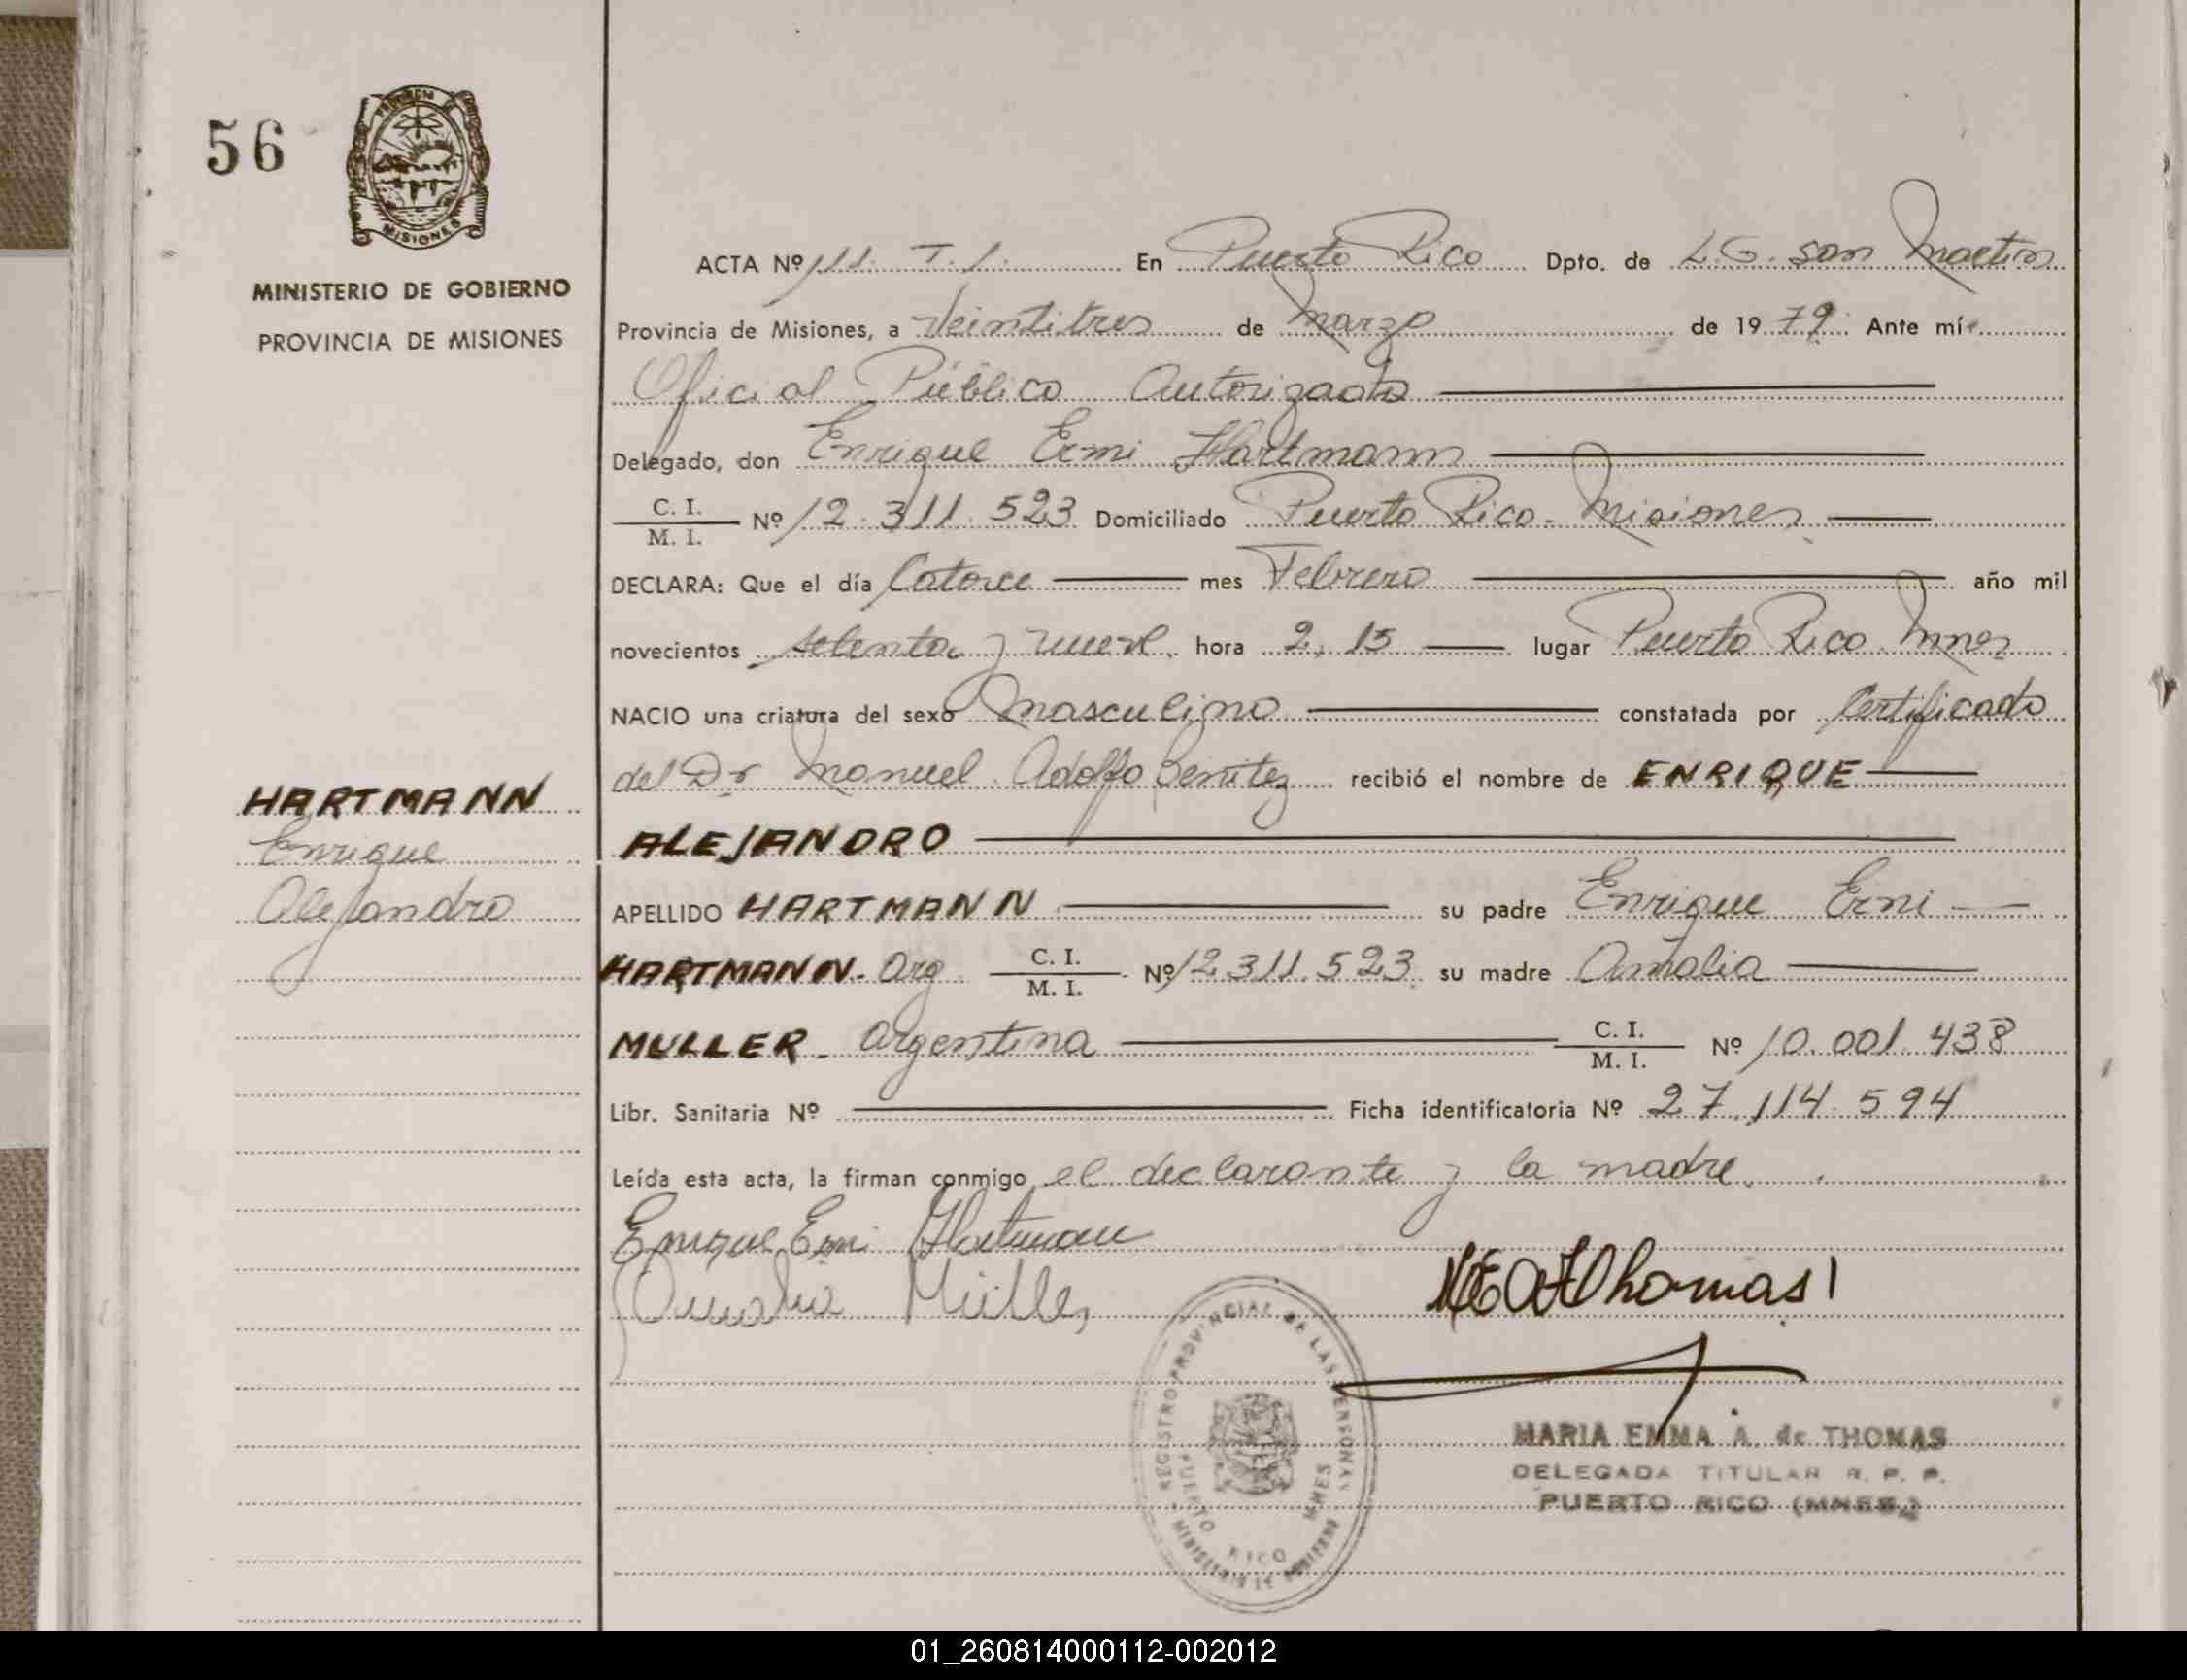 56
PROVINCIA DE
MISIONES
MINISTERIO DE GOBIERNO
PROVINCIA DE MISIONES
HARTMANN
Enrique
Alejandro
ACTA Nº 111. T. 1. En Puerto Rico Dpto. de L.G. san Martin
Provincia de Misiones, a Veintitres de Marzo de 1979. Ante mí
Oficial Público Autorizado
Delegado, don Enrique Erni Hartmann
C. I.
M. I. Nº 12.311.523 Domiciliado Puerto Rico - Misiones
DECLARA: Que el día Catorce mes Febrero año mil
novecientos setenta y nueve, hora 2,15 lugar Puerto Rico Mnes
NACIO una criatura del sexo masculino constatada por Certificado
del Dr Manuel Adolfo Benitez recibió el nombre de ENRIQUE
ALEJANDRO
APELLIDO HARTMANN su padre Enrique Erni
HARTMANN - Arg C. I.
M. I. Nº 12.311.523 su madre Amalia
MULLER - argentina C. I.
M. I. Nº 10.001.438
Libr. Sanitaria Nº Ficha identificatoria Nº 27.114.594
Leída esta acta, la firman conmigo el declarante y la madre.
Enrique Erni Hartmann
Amalia Müller
MEAThomas
REGISTRO PROVINCIAL DE LAS PERSONAS
PUERTO RICO MNES
MINISTERIO DE GOBIERNO
MARIA EMMA A. de THOMAS
DELEGADA TITULAR R. P. P.
PUERTO RICO (MNES.)
01_260814000112-002012